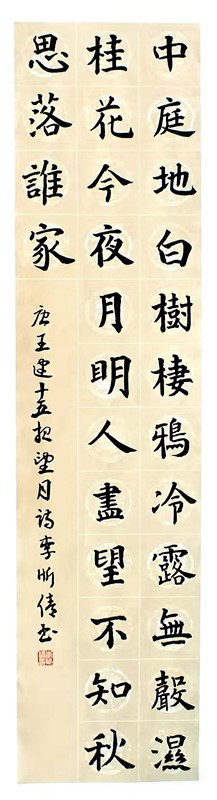 中庭地白樹棲鴉冷露無聲濕
桂花今夜月明人盡望不知秋
思落誰家
唐王建十五夜望月詩李昕倩书